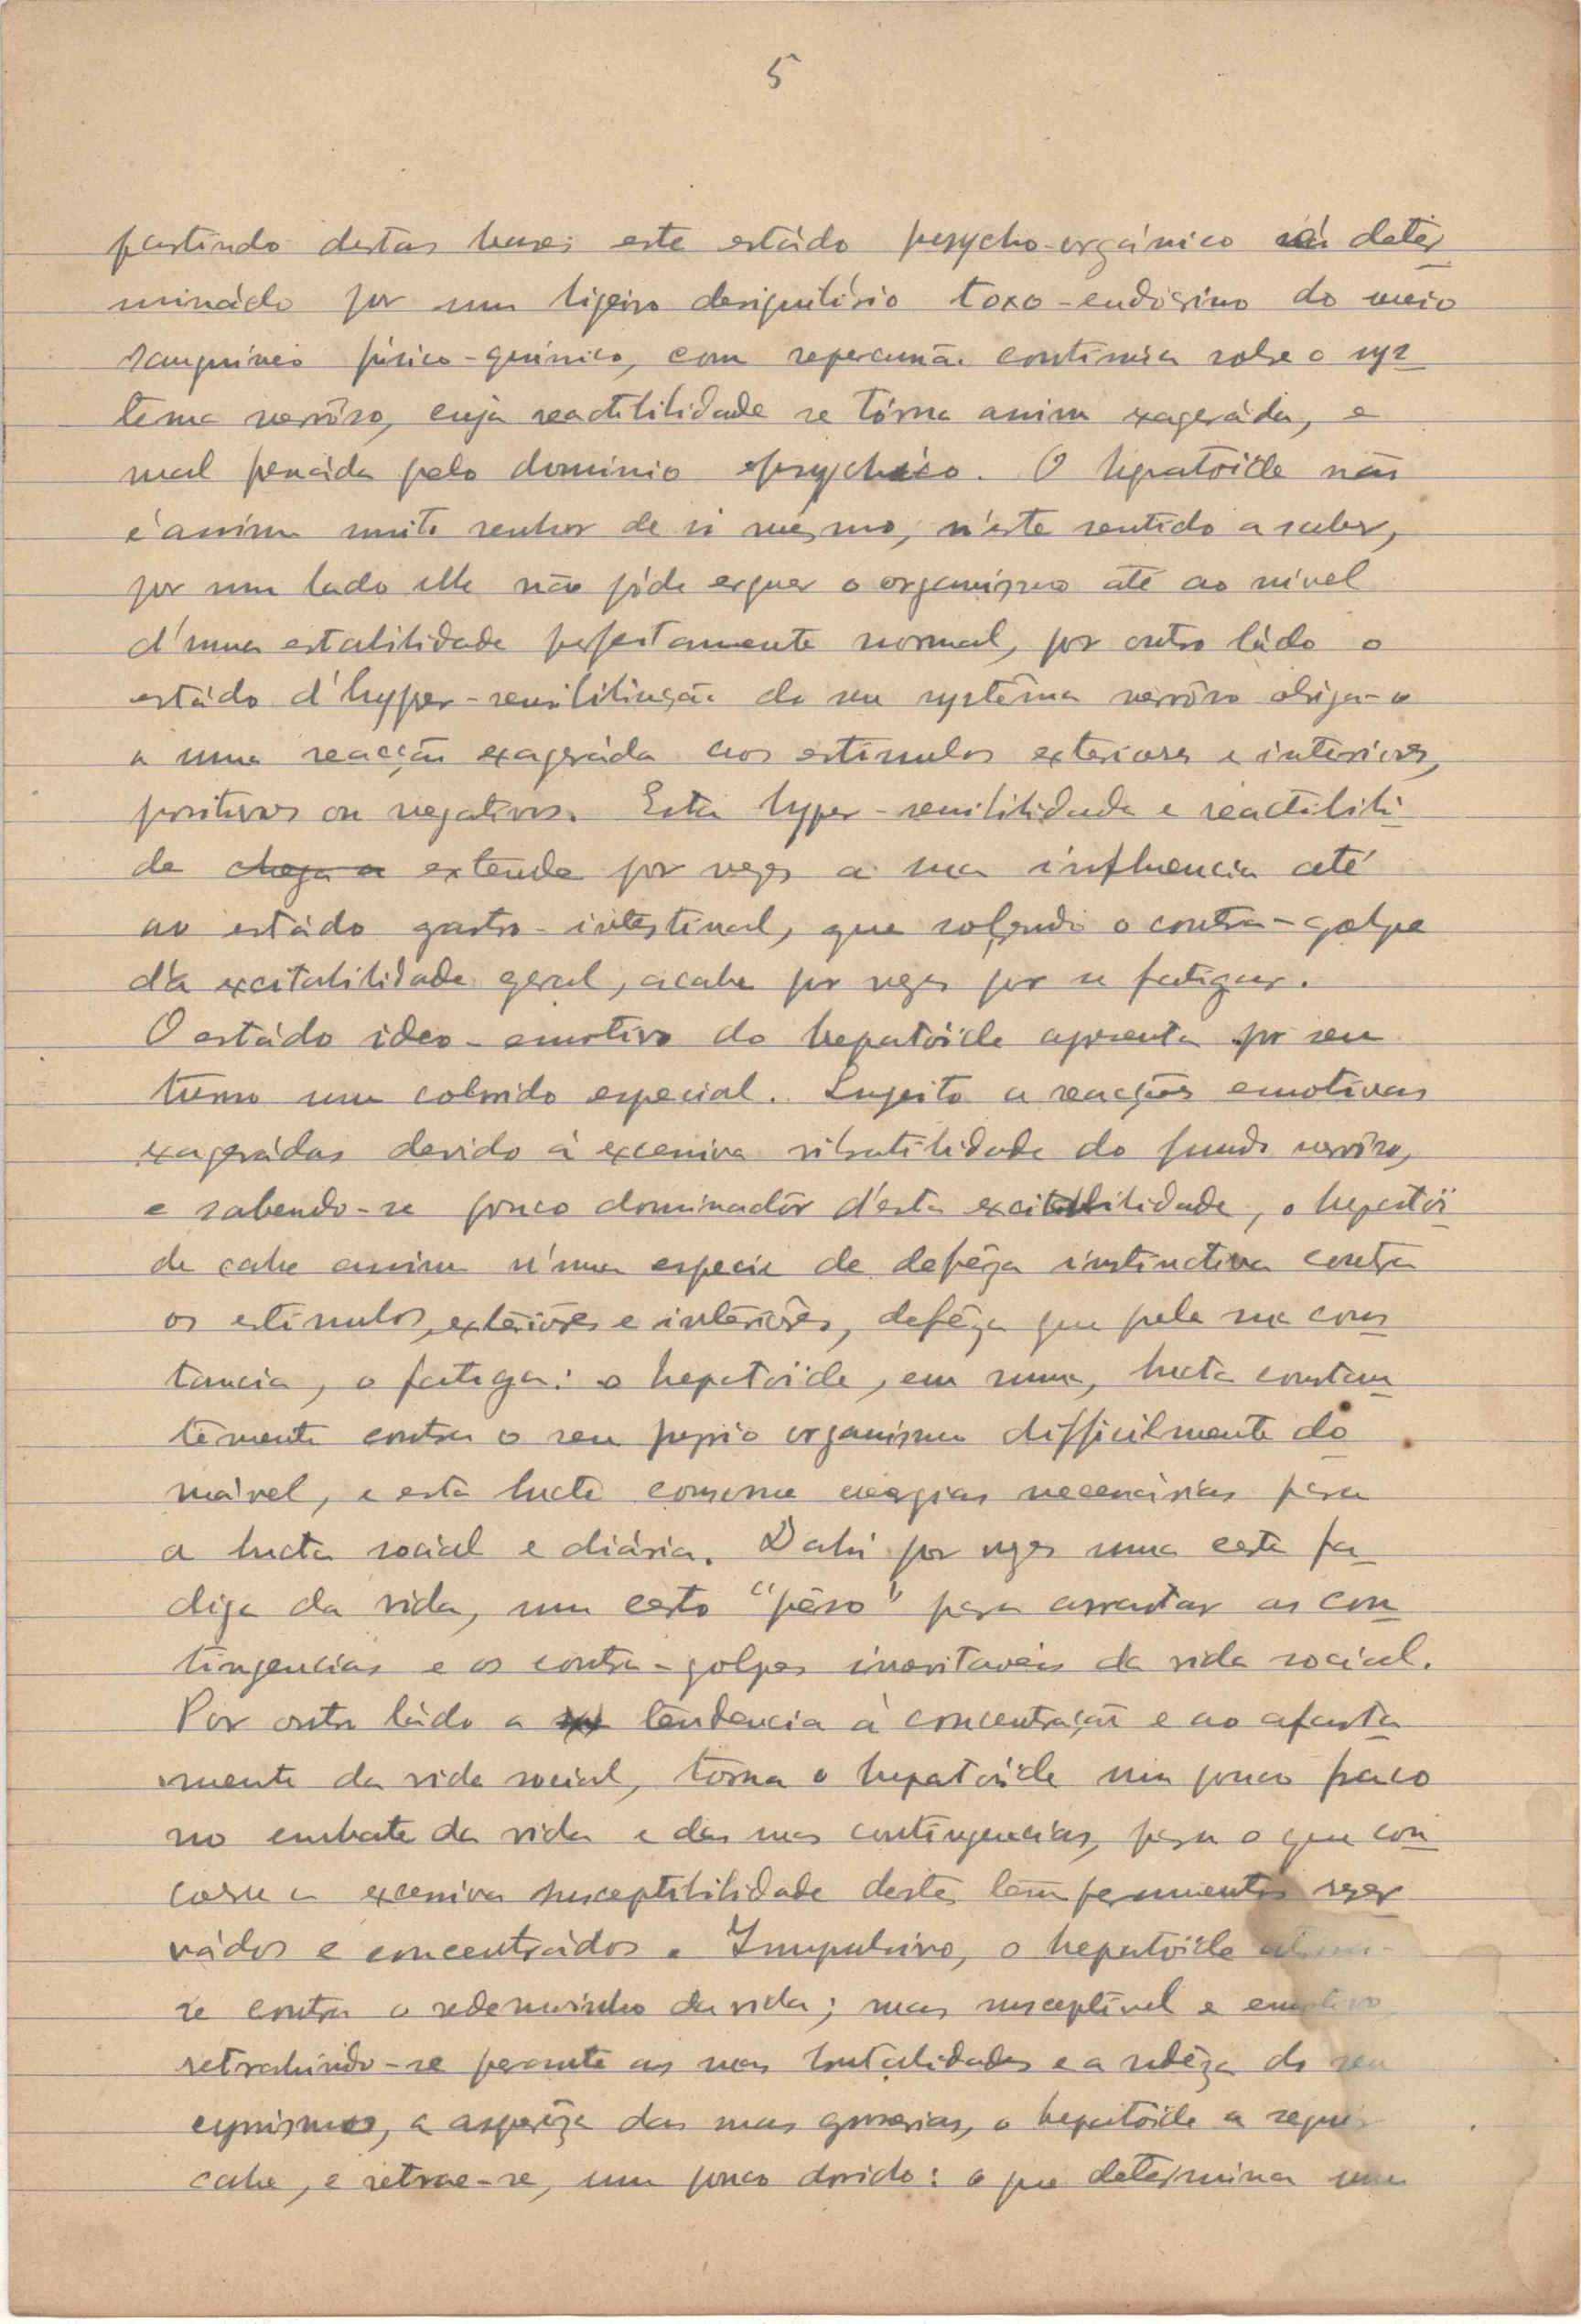 5
partindo destas bases este estádo psycho-orgánico será deter
minádo por um ligeiro desiquilibrio toxo-endócrino do meio
sanguineo físico-químico, com repercussão continua sobre o sys
tema nervôso, cuja reactibilidade se tórna assim exageráda, e
mal pensáda pelo dominio psychico. O hepatóide não
é assim muito senhor de si mesmo, n'este sentido a saber,
por um lado elle não póde erguer o organismo até ao nivel
d'uma estabilidade perfeitamente normal, por outro ládo o
estádo d'hyper-sensibilisação do seu systêma nervôso obriga-o
a uma reacção exageráda aos estimulos exteriores e interiores,
positivos ou negativos. Esta hyper-sensibilidade e reactibili
de chega a extende por vezes a sua influencia até
ao estádo gastro-intestinal, que sofrendo o contra-golpe
d'a excitabilidade geral, acaba por vezes por se fatigar.
O estádo ideo-emotivo do hepatóide apresenta por seu
turno um colorido especial. Sugeito a reacções emotivas
exagerádas devido á excessiva vibratilidade do fundo nervôso,
e sabendo-se pouco dominadôr d'esta excitabilidade, o hepatói
de cahe assim n'uma especie de defêza instinctiva contra
os estimulos exterióres e interióres, defêza que pela sua cons
tancia, o fatiga: o hepatóide, em suma, lucta constan
temente contra o seu proprio organismo difficilmente do
mável, e esta lucta consome energias necessárias para
a lucta social e diária. D'ahi por vezes uma certa fa
diga da vida, um certo "pêso" para arrastar as con
tingencias e os contra-golpes inevitaveis da vida social.
Por outro ládo a tendencia á concentração e ao afasta
mento da vida social, torna o hepatóide um pouco fraco
no embate da vida e das suas contingencias, para o que con
corre a excessiva susceptibilidade destes temperamentos reser
vádos e concentrádos. Impulsivo, o hepatóide
se contra o redemoinho da vida; mas susceptivel e emotivo
retrahindo-se perante as suas brutalidades e a rudêza do seu
cynismo, a asperêza das suas grosserias, o hepatóide a seguir
cahe, e retrae-se, um pouco dorido: o que determina um